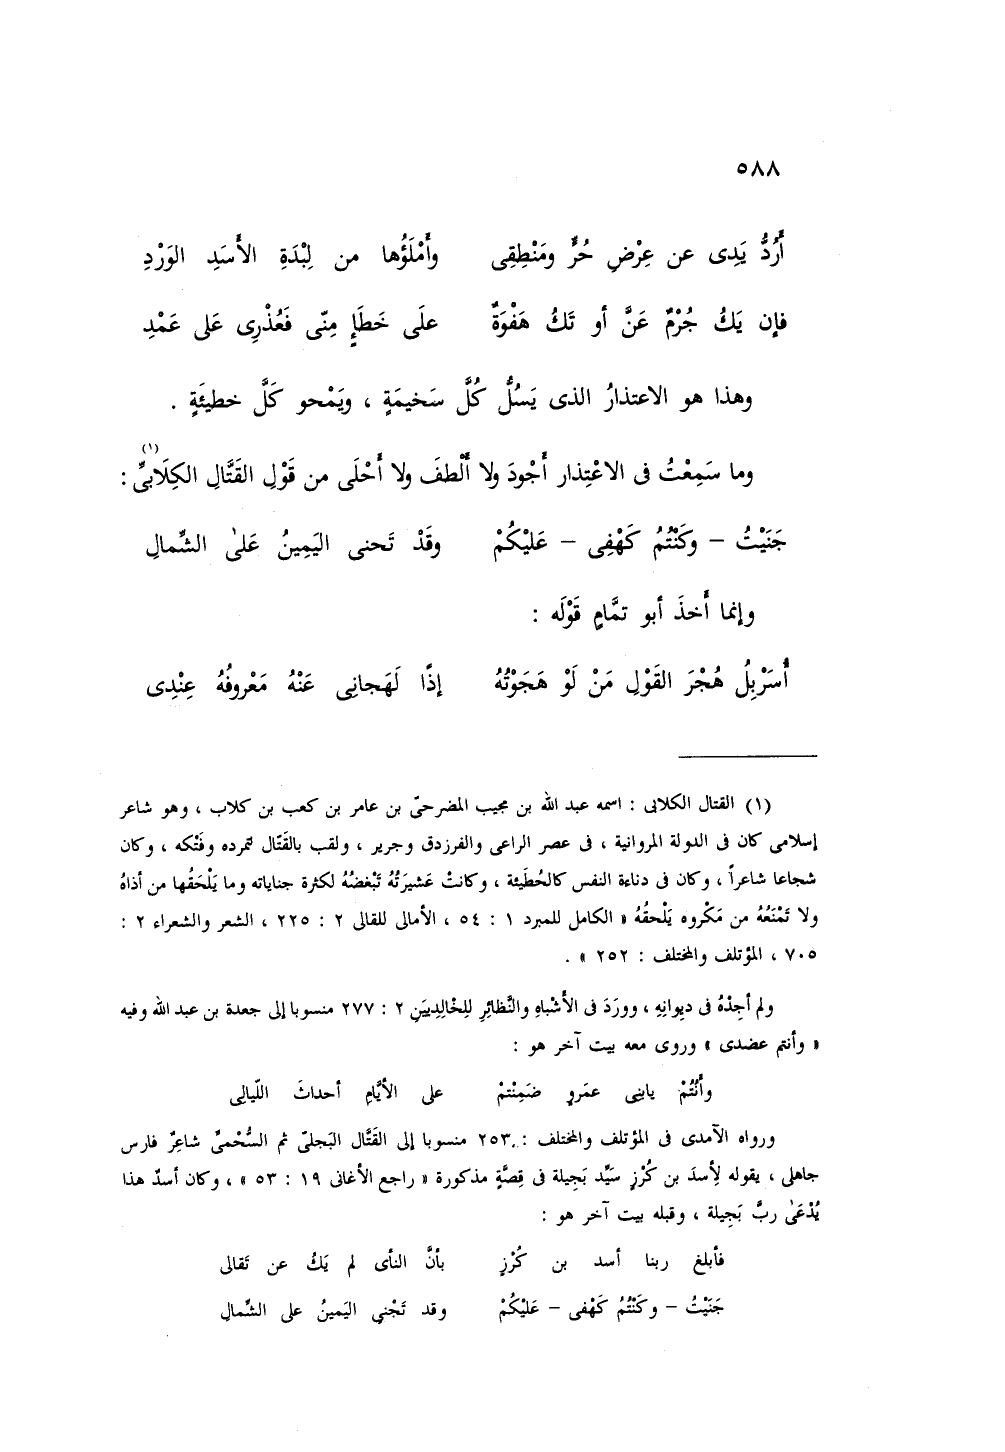 ٥٨٨
أَرُدُّ يَدِى عن عِرْضِ حُرٍّ ومَنْطِقِى وأَمْلَؤُها من لِبْدَةِ الأَسَدِ الوَرْدِ
فإن يَكُ جُرْمٌ عَنَّ أو تَكُ هَفْوَةٌ علَى خَطَإٍ مِنّى فَعُذْرِى عَلى عَمْدِ
وهذا هو الاعتذارُ الذى يَسُلُّ كُلَّ سَخيمَةٍ ، ويَمْحو كَلَّ خطيئَةٍ .
وما سَمِعْتُ فى الاعْتِذار أَجْودَ ولا أَلْطفَ ولا أَحْلَى من قَوْلِ القَتَّالِ الكِلَابىِّ(١) :
جَنَيْتُ – وكَنْتُمُ كَهْفِى – عَليْكُمْ وقَدْ تَحنى اليَمِينُ عَلىٰ الشِّمالِ
وإنما أَخذَ أبو تمَّامٍ قَوْلَه :
أُسَرْبِلُ هُجْرَ القَوْلِ مَنْ لَوْ هَجَوْتُهُ إذًا لَهَجانِى عَنْهُ مَعْروفُهُ عِنْدِى
(١) القتال الكلابى : اسمه عبد الله بن مجيب المضرحىّ بن عامر بن كعب بن كلاب ، وهو شاعر
إسلامى كان فى الدولة المروانية ، فى عصر الراعى والفرزدق وجرير ، ولقب بالقَتّال لتمرده وفَتْكه ، وكان
شجاعا شاعراً ، وكان فى دناءة النفس كالحُطَيئة ، وكانتْ عَشيرَتُهُ تَبْغضُهُ لكثرة جناياته وما يَلْحَقُها من أذاهُ
ولا تَمْنَعُهُ من مَكْروه يَلْحقُهُ « الكامل للمبرد ١ : ٥٤ ، الأمالى للقالى ٢ : ٢٢٥ ، الشعر والشعراء ٢ :
٧٠٥ ، المؤتلف والمختلف : ٢٥٢ » .
ولم أجِدْهُ فى دِيوانِهِ ، وورَدَ فى الأَشْباهِ والنَّظائِرِ لِلخْالِدِييَنِ ٢ : ٢٧٧ منسوبا إلى جعدة بن عبد الله وفيه
« وأنتم عضدى » وروى معه بيت آخر هو :
وأَنْتُمْ يابنِى عمَروٍ ضَمِنْتمْ على الأيَّامِ أحداثَ اللّيالِى
ورواه الآمدى فى المؤتلف والمختلف : ٢٥٣ منسوبا إلى القَتَّال البَجلىّ ثم السُّحْمىِّ شاعِرٌ فارس
جاهلى ، يقوله لِأسدَ بن كُرْزٍ سَيِّد بَجِيلة فى قِصَّةٍ مذكورة « راجع الأغانى ١٩ : ٥٣ » ، وكان أسدٌ هذا
يُدْعَىٰ ربَّ بَجِيلة ، وقبله بيت آخر هو :
فأبلغ ربنا أسد بن كُرْزٍ بأنَّ النأى لم يَكُ عن تَقالى
جَنَيْتُ – وكَنْتُمُ كَهْفى – عَليْكُمْ وقد تَجْنىِ اليَمينُ على الشِّمالِ